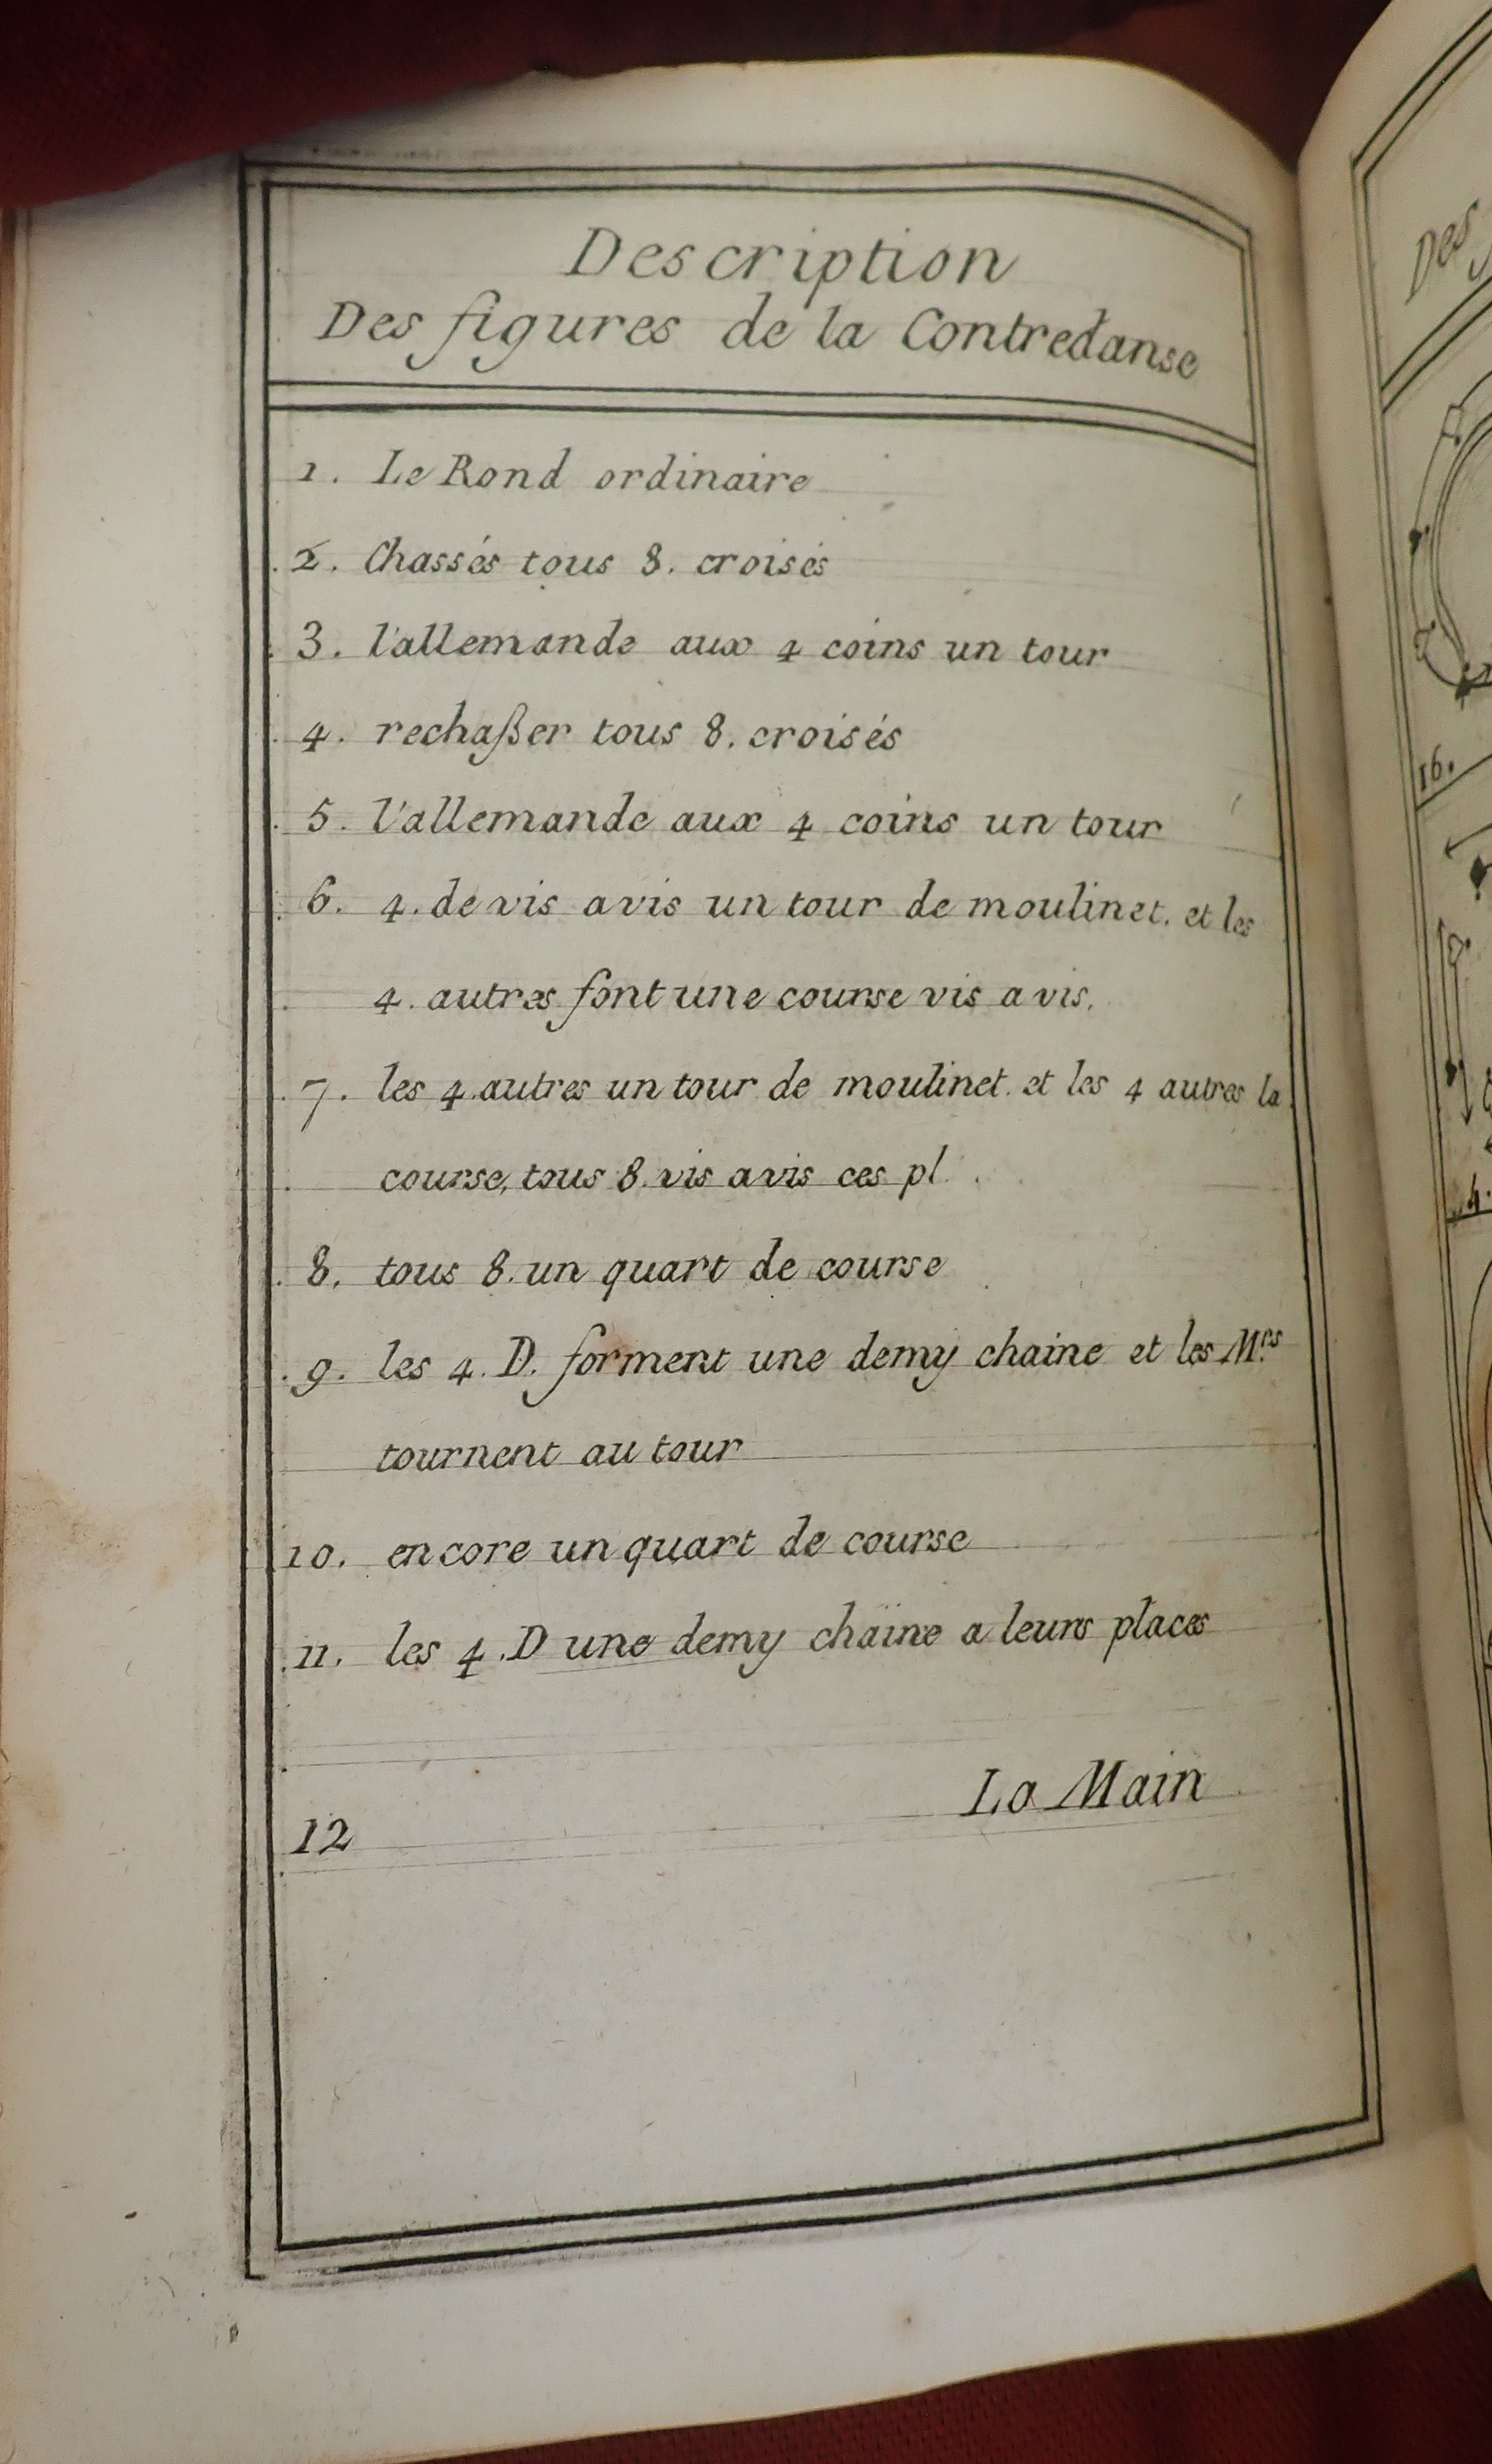 Description
Des figures de la Contredanse
1. Le Rond ordinaire
2. Chassés tous 8. croisés
3. l'allemande aux 4 coins un tour
4. rechaßer tous 8. croisés
5. l'allemande aux 4 coins un tour
6. 4. de vis avis un tour de moulinet. et les
4. autres font une course vis a vis.
7. les 4 autres un tour de moulinet. et les 4 autres la
course, tous 8. vis avis ces pl.
8. tous 8. un quart de course
9. les 4. D. forment une demy chaine et les M.rs
tournent au tour
10. encore un quart de course
11. les 4. D une demy chaine a leurs places
La Main
12
Des
16.
4.